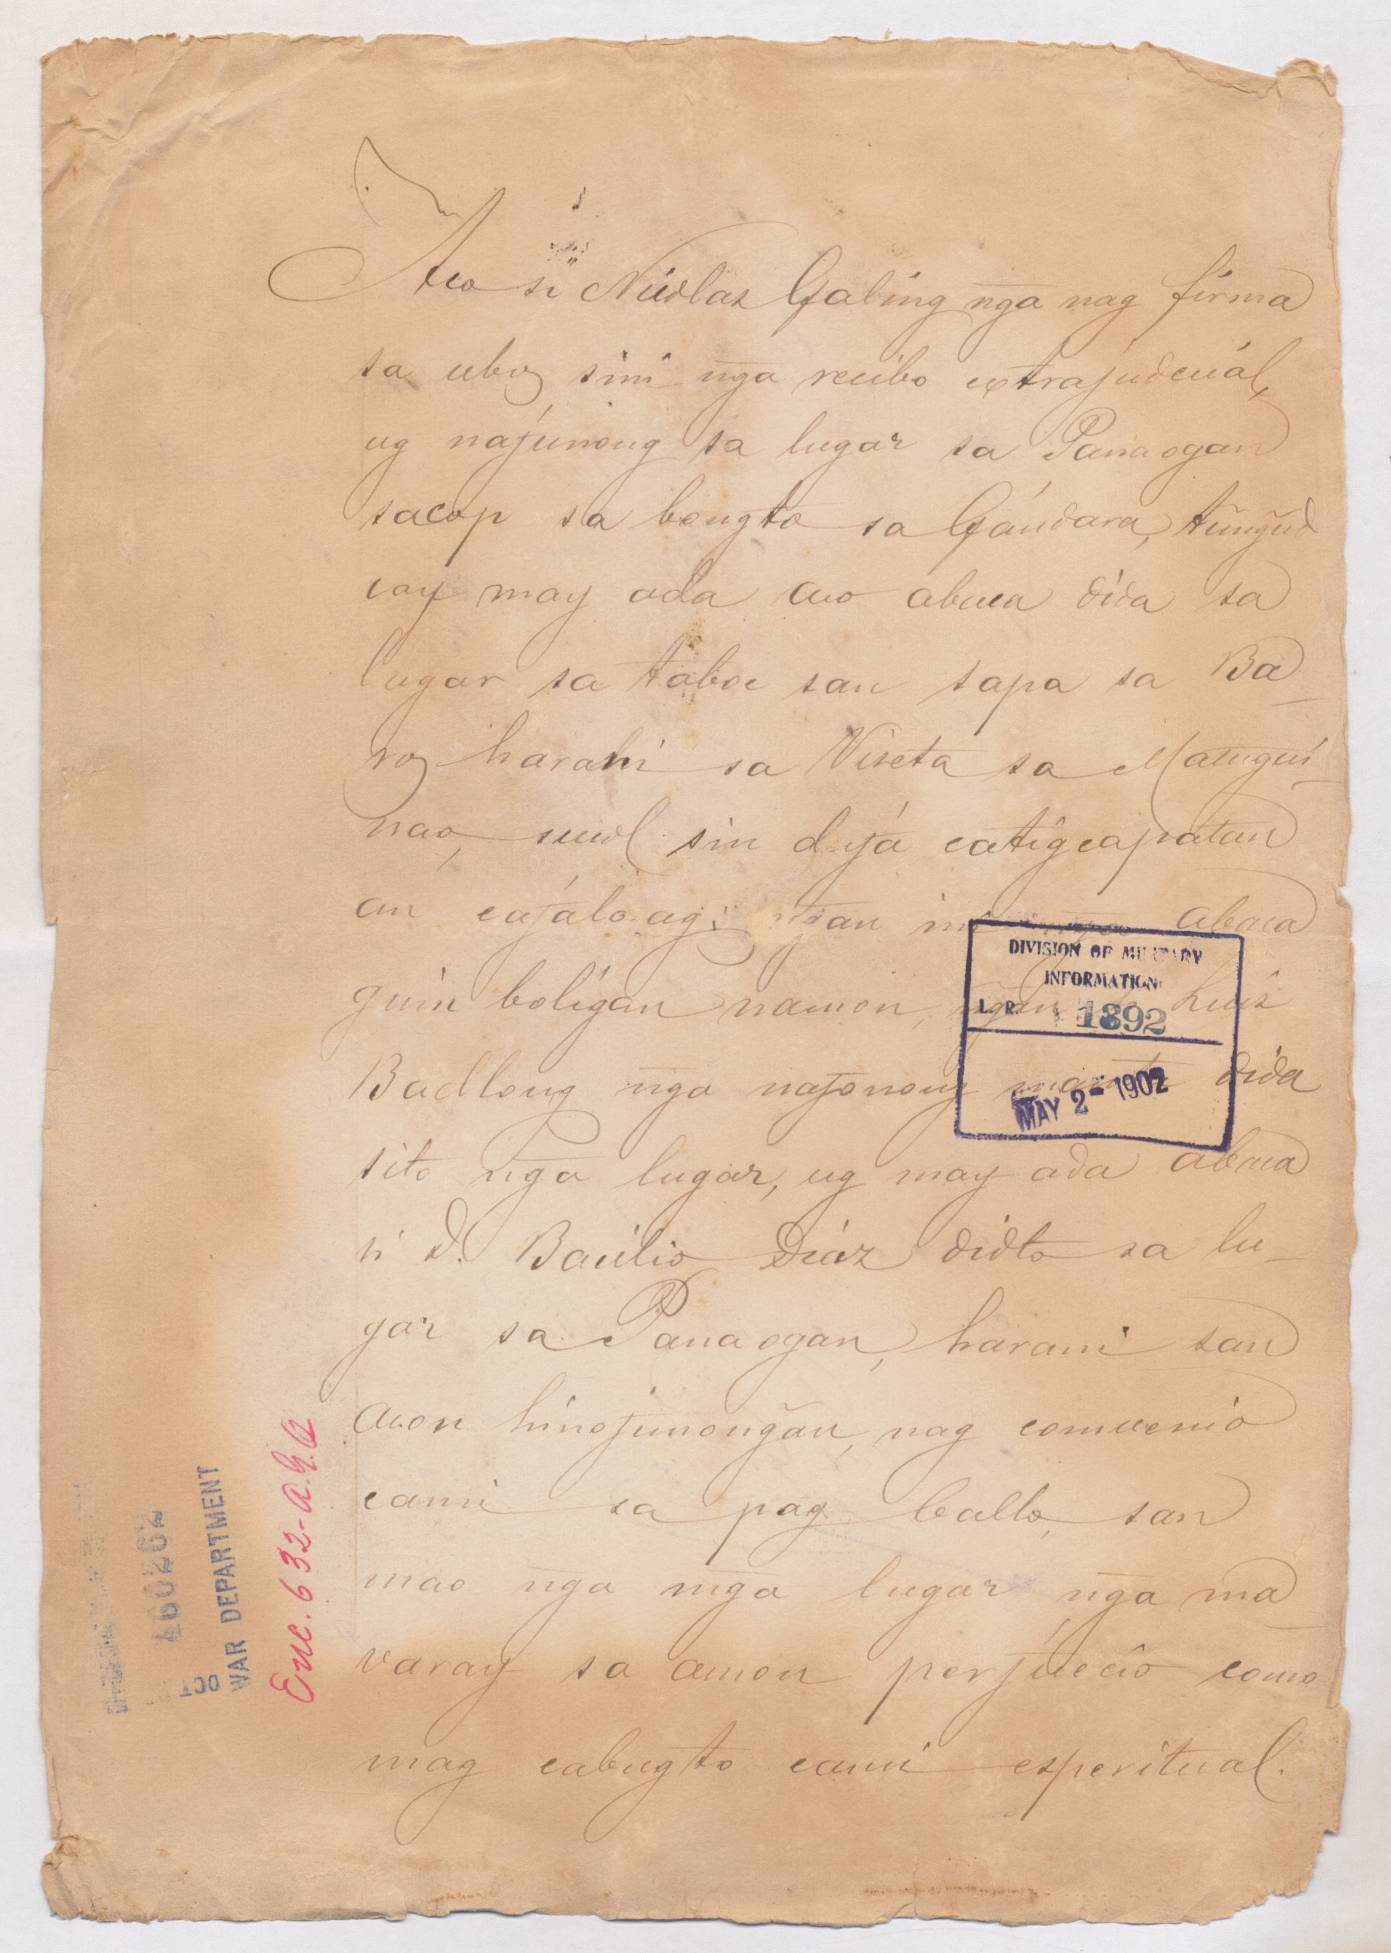 Aco si Nicolas Galing nga nag firma
sa ubos sini nga recibo extrajudicial,
ug najunong sa lugar sa Panaogan
sacop sa bongto sa Gándara, tungud
cay may ada aco abaca dida sa
lugar sa taboc san sapa sa Ba
roy harani sa Viseta sa Matugui
nao, sucol sin d-ija catigcapatan
an cajaloag; abaca
guin boligan namon, Luis
Badlong nga najonong dida
sito nga lugar, ug may ada abaca
si D. Bacilio Diaz didto sa lu-
gar sa Panaogan, harani san
acon hinojunongan, nag comvenio
cami sa pag ballo, san
mao nga mga lugar nga ma
varay sa amon perjuecio como
mag cabugto cami esperitual.
DIVISION OF MILITARY
INFORMATION
L. R. 1392
MAY 2- 1902
WAR DEPARTMENT
Enc. 632-A.G.O